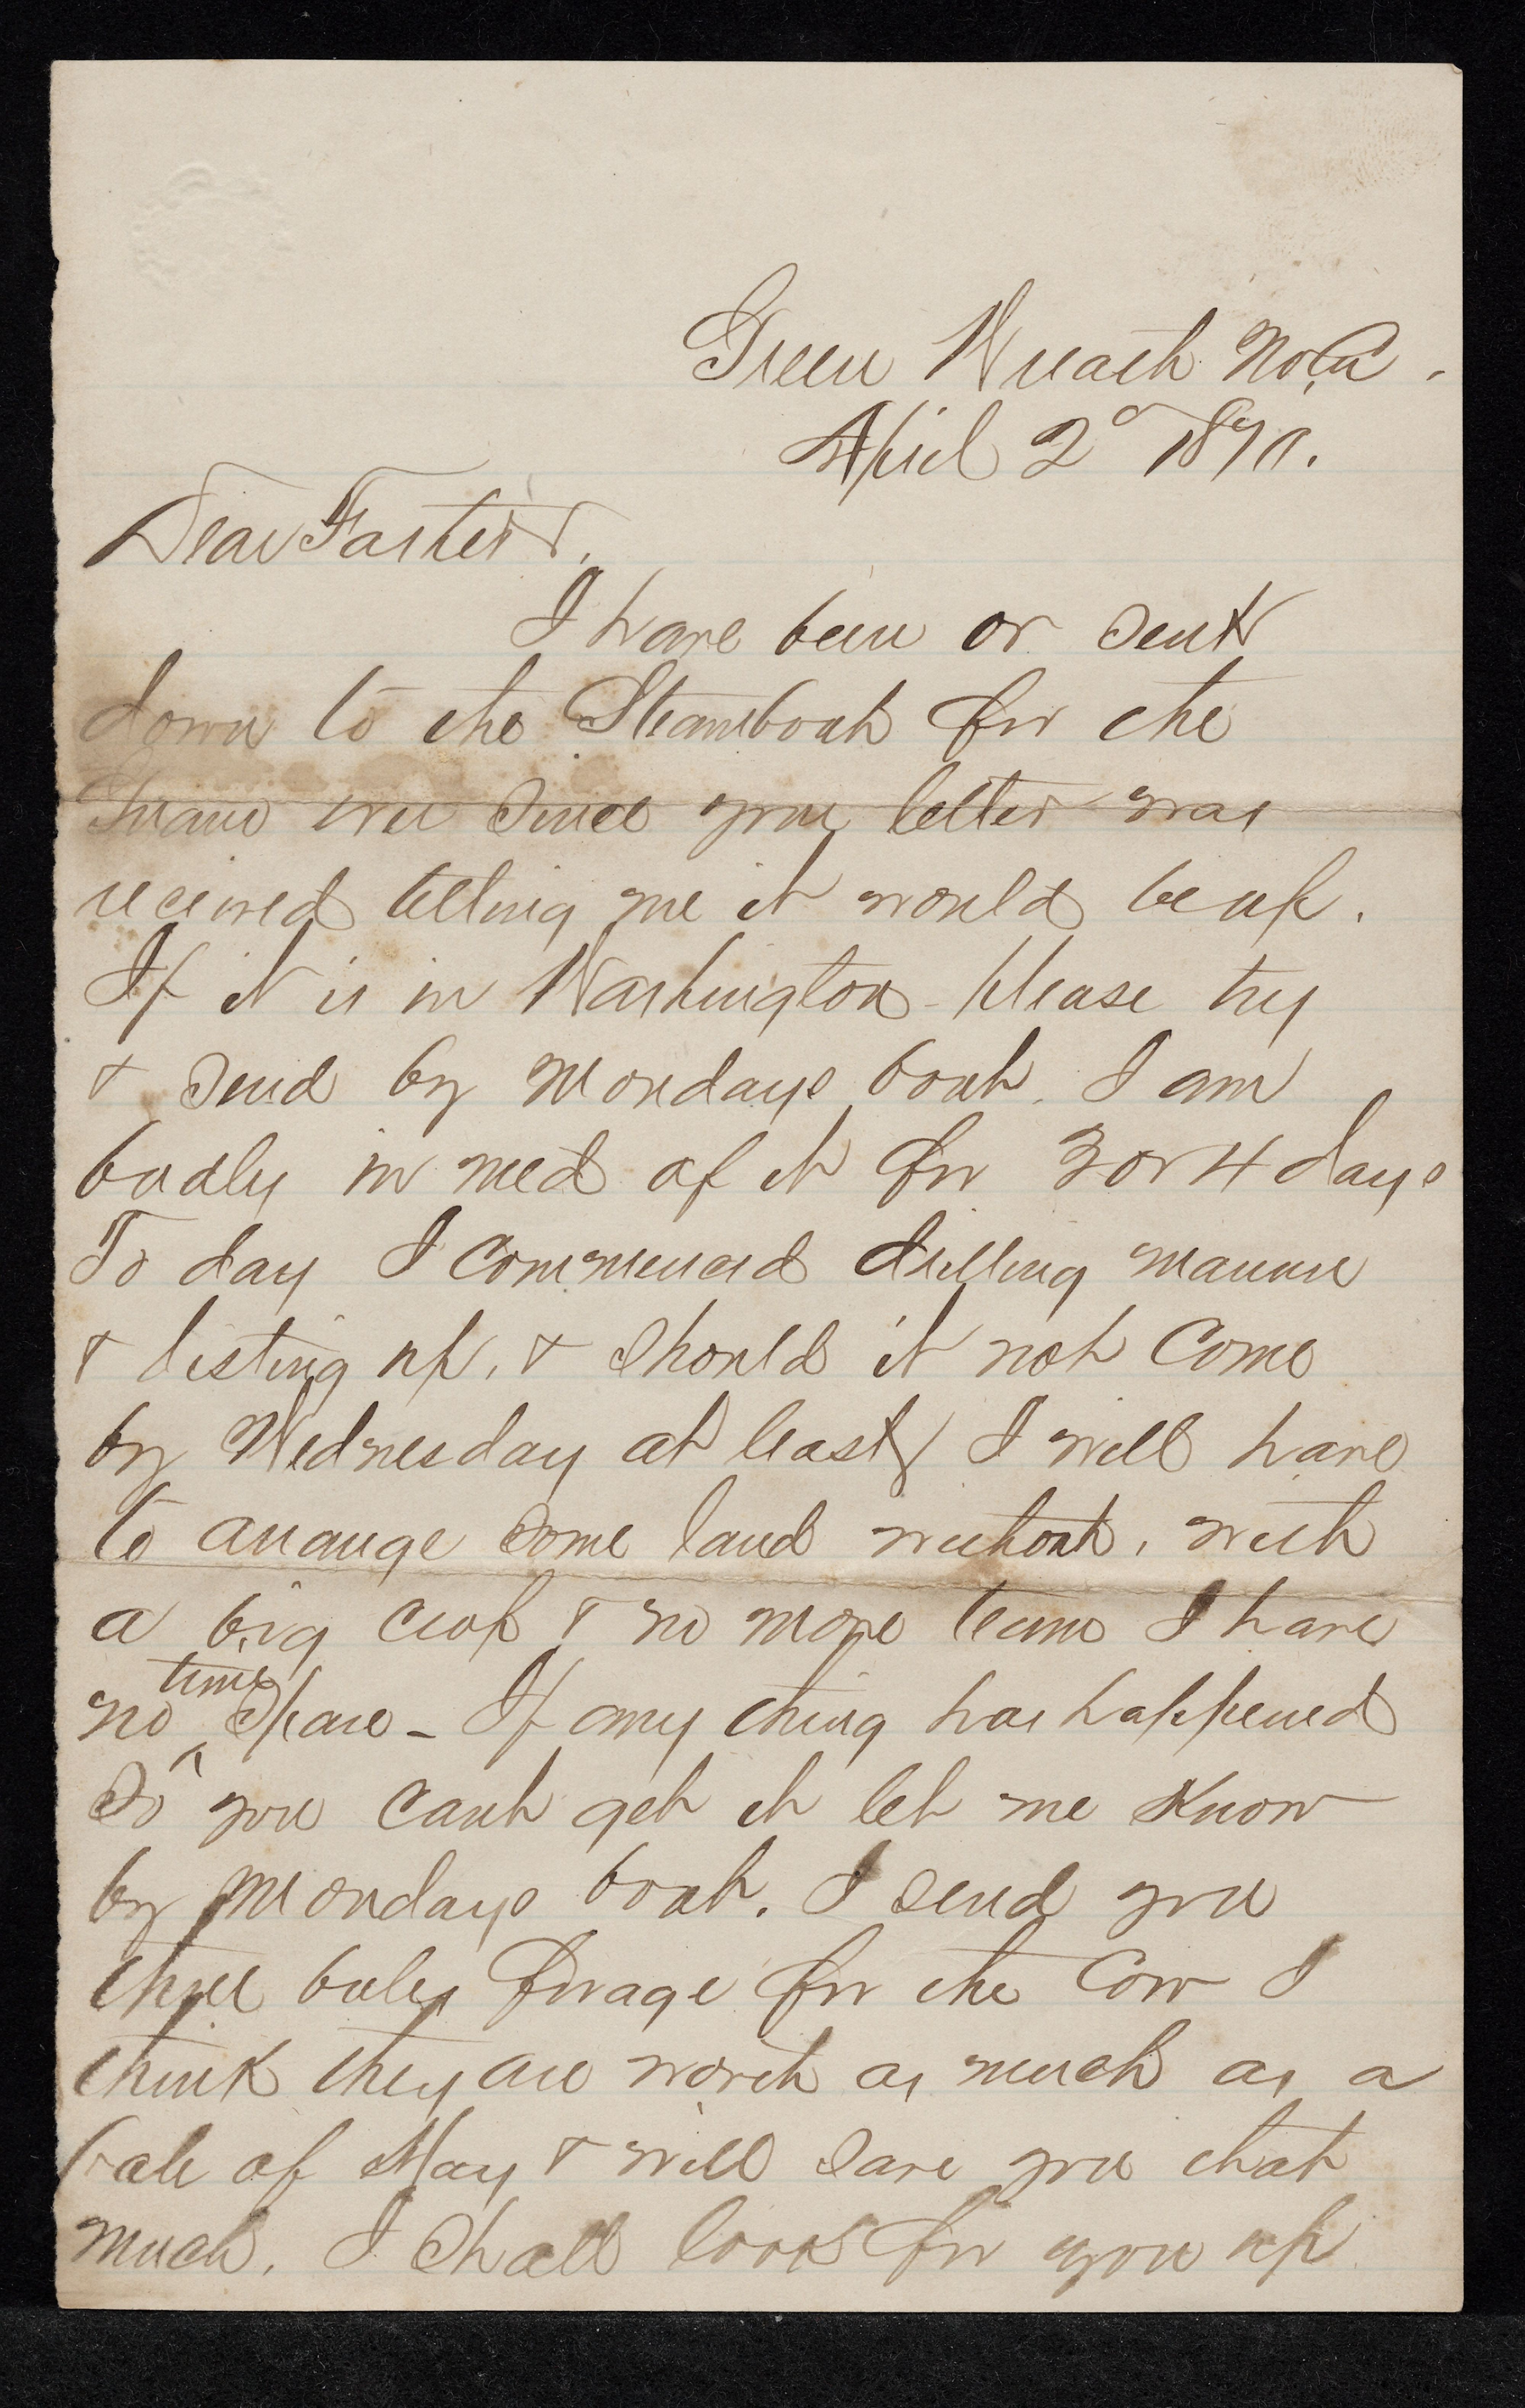 Green Wreath No, Ca.
April 2d 1870.
Dear Father,
I have been or sent
down to the Steamboat for the
Guano ever since your letter was
recieved telling me it would be up.
If it is in Washington please try
& send by Mondays boat. I am
badly in need of it for 3 or 4 days
To day I commenced drilling manure
& listing up, & should it not come
by Wednesday at least, I will have
to arrange some land without, with
a big crop & no more team I have
no time spare - If any thing has happened
So you cant get it let me know
by Mondays boat. I send you
three bales forage for the Cow I
think they are worth as much as a
bale of Hay & will save you that
much. I shall look for you up